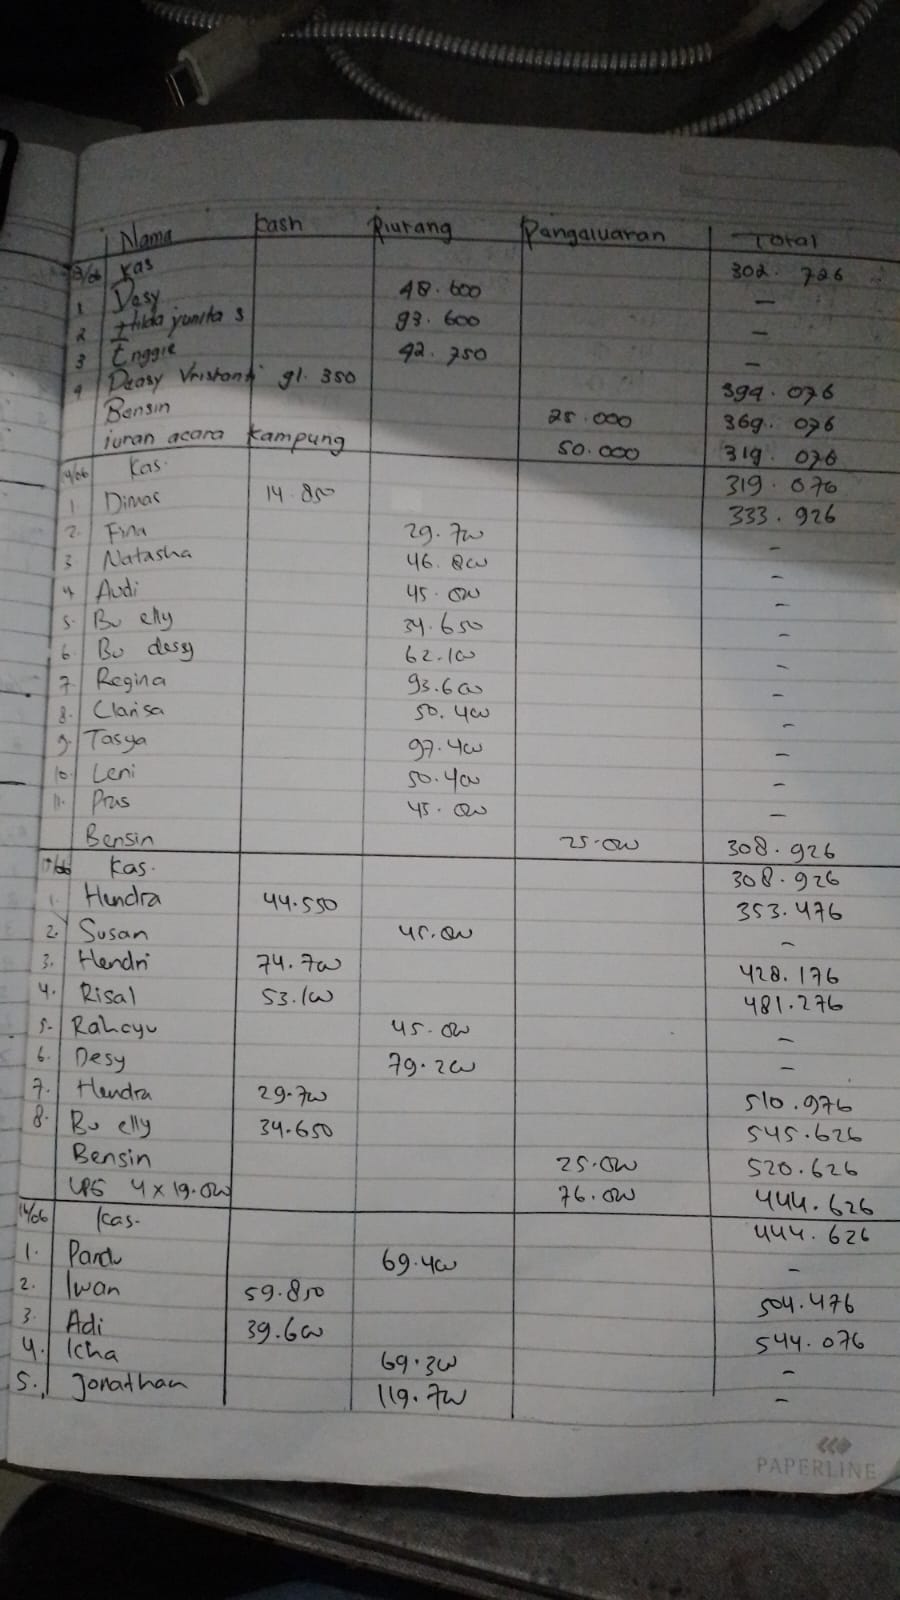 Nama Kash Piutang Pengeluaran Total
13/06 Kas 302.726
1 Desy 48.600 -
2 Hilda yunita s 93.600 -
3 Enggie 42.750 -
4 Deasy Vristanti 91.350 394.076
Bensin 25.000 369.076
iuran acara kampung 50.000 319.076
14/06 Kas. 319.076
1 Dimas 14.850 333.926
2. Fina 29.700 -
3 Natasha 46.800 -
4 Audi 45.000 -
5. Bu elly 34.650 -
6. Bu dessy 62.100 -
7. Regina 93.600 -
8. Clarisa 50.400 -
9. Tasya 97.400 -
10. Leni 50.400 -
11. Pras 45.000 -
Bensin 25.000 308.926
Kas. 308.926
1. Hendra 44.550 353.476
2. Susan 45.000 -
3. Hendri 74.700 428.176
4. Risal 53.100 481.276
5. Rahayu 45.000 -
6. Desy 79.200 -
7. Hendra 29.700 510.976
8. Bu elly 34.650 545.626
Bensin 25.000 520.626
LPG 4 x 19.000 76.000 444.626
14/06 Kas. 444.626
1. Pandu 69.400 -
2. Iwan 59.850 504.476
3. Adi 39.600 544.076
4. Icha 69.300 -
5. Jonathan 119.700 -
PAPERLINE